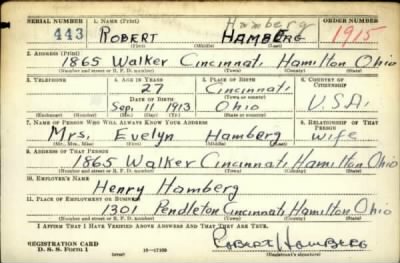 SERIAL NUMBER 1. NAME (Print) ORDER NUMBER
Hamberg
443 ROBERT HAMBERG 1915
(First) (Middle) (Last)
2. ADDRESS (Print)
1865 Walker Cincinnati, Hamilton Ohio
(Number and street or R. F. D. number) (Town) (County) (State)
3. TELEPHONE 4. AGE IN YEARS 5. PLACE OF BIRTH 6. COUNTRY OF CITIZENSHIP
27 Cincinnati,
(Town or county)
DATE OF BIRTH
Sep. 11 1913 Ohio U.S.A.
(Exchange) (Number) (Mo.) (Day) (Yr.) (State or country)
7. NAME OF PERSON WHO WILL ALWAYS KNOW YOUR ADDRESS 8. RELATIONSHIP OF THAT PERSON
Mrs. Evelyn Hamberg wife
(Mr., Mrs., Miss) (First) (Middle) (Last)
9. ADDRESS OF THAT PERSON
1865 Walker Cincinnati, Hamilton Ohio
(Number and street or R. F. D. number) (Town) (County) (State)
10. EMPLOYER'S NAME
Henry Hamberg
11. PLACE OF EMPLOYMENT OR BUSINESS
1301 Pendleton Cincinnati, Hamilton Ohio
(Number and street or R. F. D. number) (Town) (County) (State)
I AFFIRM THAT I HAVE VERIFIED ABOVE ANSWERS AND THAT THEY ARE TRUE.
REGISTRATION CARD
D. S. S. Form 1 16-17105 Robert Hamberg
(over) (Registrant's signature)